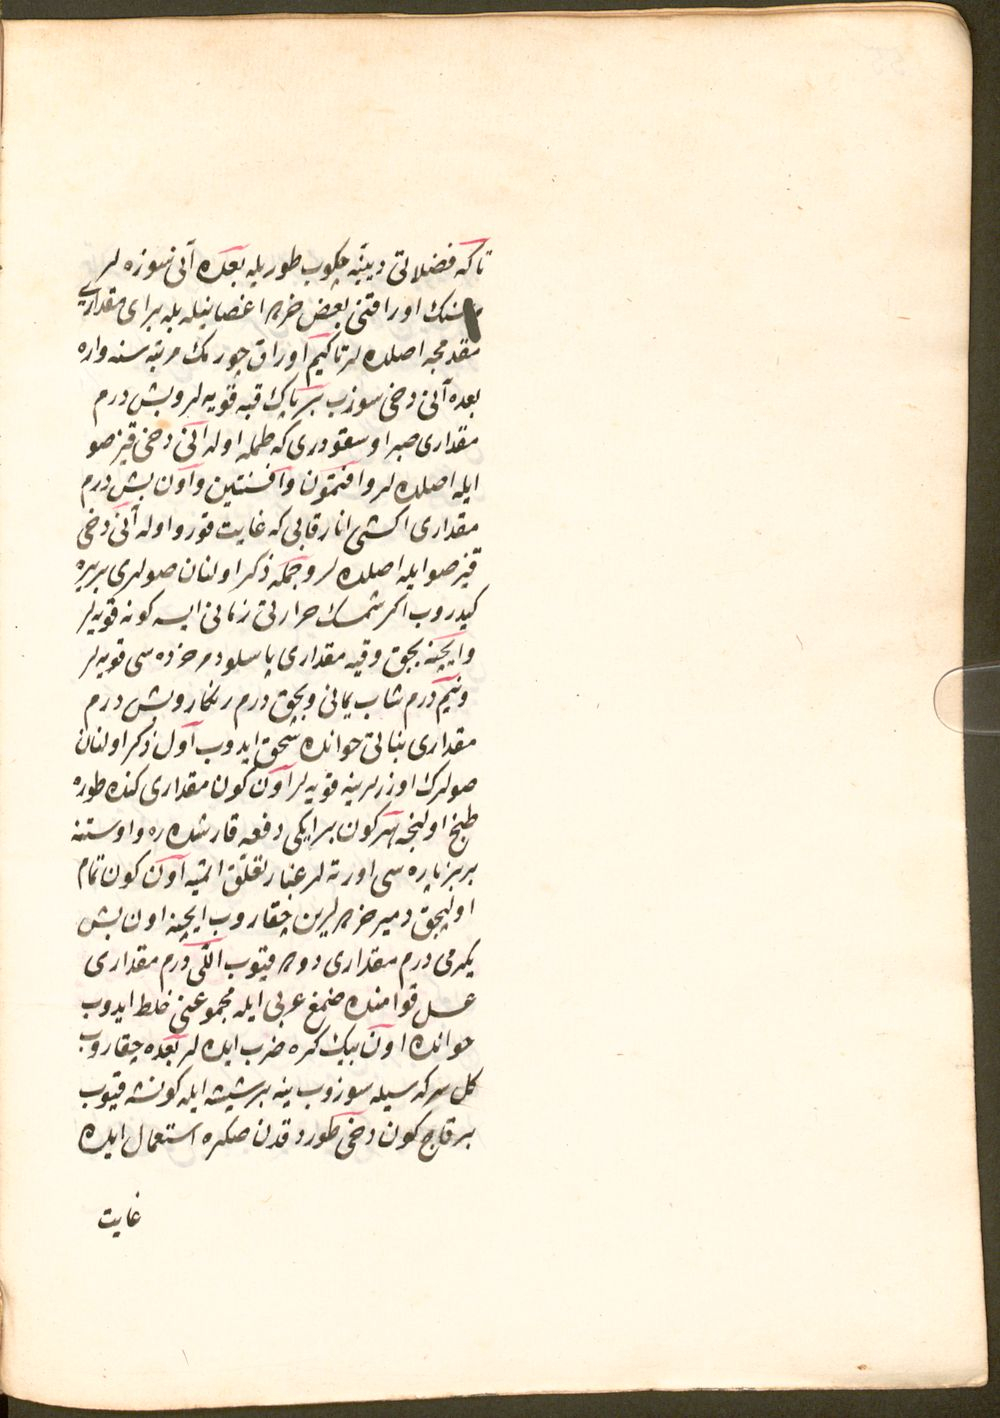 تا كه فضلاتی دیبنه چكوب طوریله بعده آنی سوزه لر
اوراقنی بعض خرده اغصانیله بله برای مقداری
مقدمجه اصلده لر تا كیم اوراق چورمك مرتبه سنه واره
بعده آنی دخی سوزب بر پاك قبه قویه لر و بش درم
مقداری صبر اوسقودری كه طمله اوله آنی دخی قیز صو
ایله اصلده لر و افتمون و آفسنتین و آون بش درم
مقداری اكشی انار قابی كه غایت قورو اوله آنی دخی
قیز صو ایله اصلده لر و جمله ذكر اولنان صولری بربره
كیدروب اكر شمسك حرارتی زمانی ایسه كونه قویه لر
و ایچنه بچق وقیه مقداری پاسلو دمر خرده سی قویه لر
و نیم درم شاب یمانی و بچق درم زنكار و بش درم
مقداری نباتی حوانده سحق ایدوب آول ذكر اولنان
صولرك اوزرلرینه قویه لر آون كون مقداری كنده طوره
طبخ اولنجه هر كون بر ایكی دفعه قارشدره ره و اوستنه
بر بز پاره سی اورته لر غبار تعلق اتمیه آون كون تمام
اولیجق دمیر خرده لرین چقاروب ایچنه اون بش
یكرمی درم مقداری دوده قیوب اللی درم مقداری
عسل قوامنده ضمغ عربی ایله مجموعنی خلط ایدوب
حوانده اون بیك كره ضرب ایده لر بعده چقاروب
كل سركه سیله سوزوب ینه بر شیشه ایله كونشه قیوب
بر قاچ كون دخی طوردقدن صكره استعمال ایده
غایت